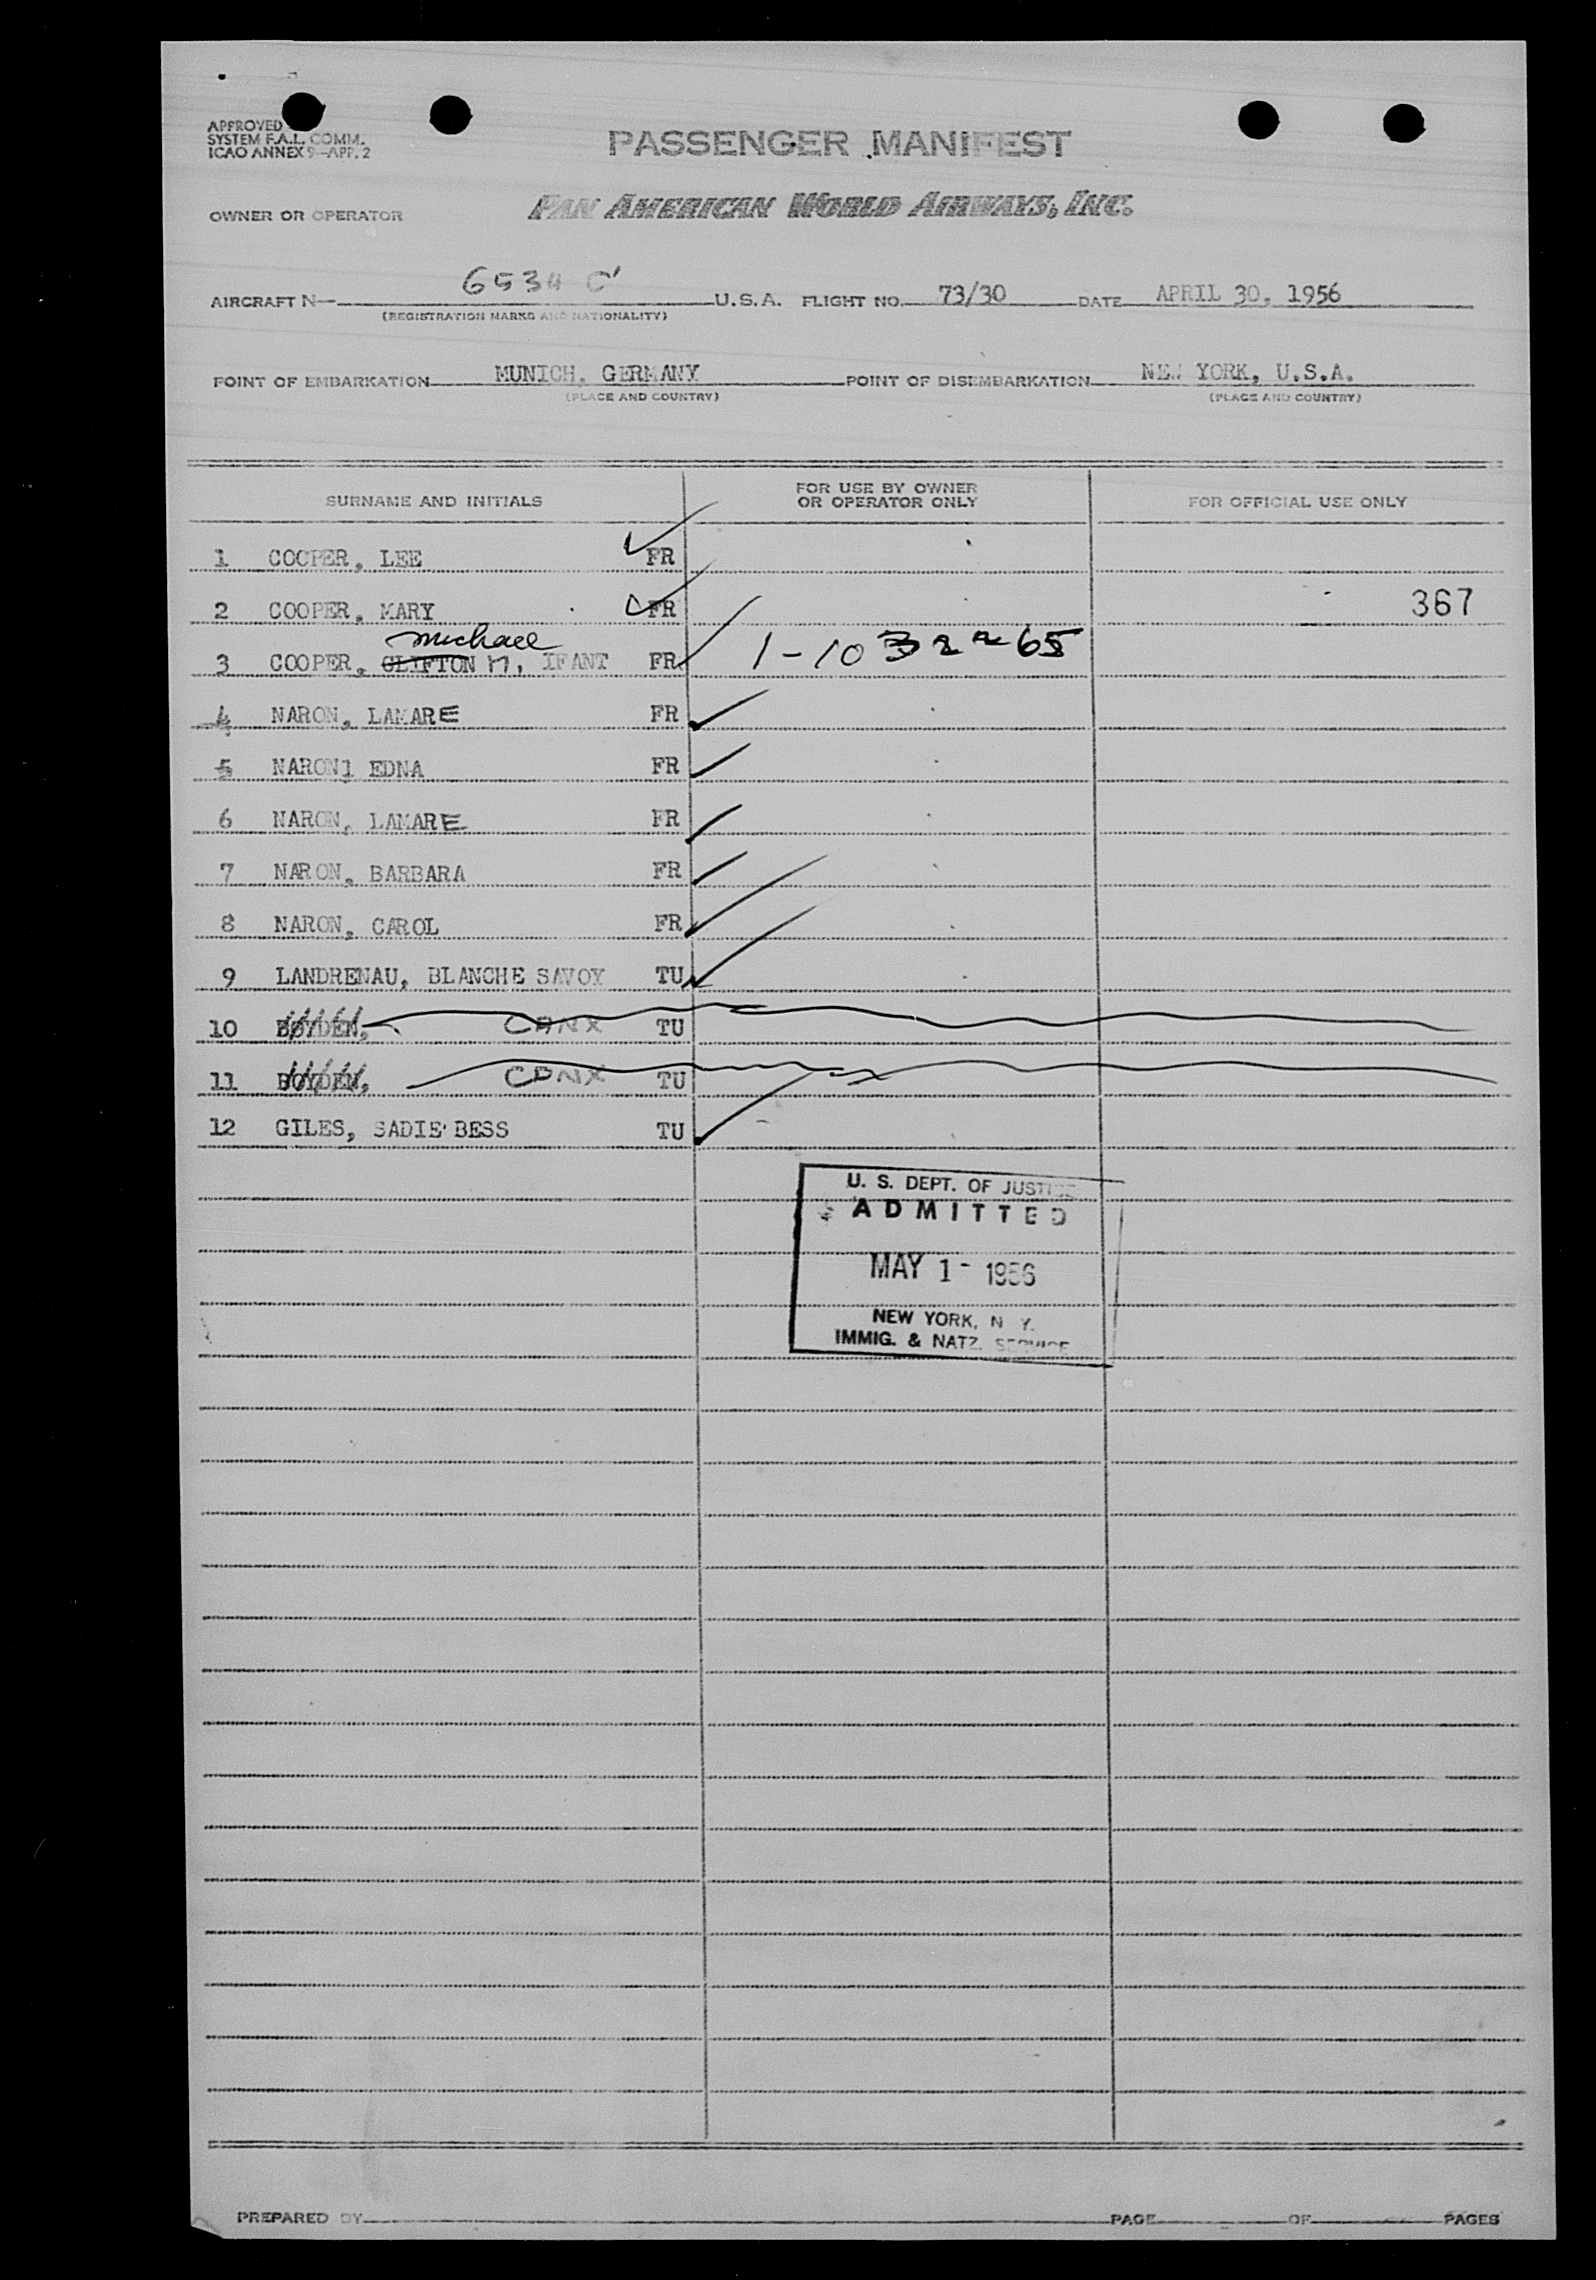 APPROVED
SYSTEM F.A.L. COMM.
ICAO ANNEX 9-APP. 2
PASSENGER MANIFEST
OWNER OR OPERATOR PAN AMERICAN WORLD AIRWAYS, INC.
AIRCRAFT N- 6534 C U.S.A. FLIGHT NO. 73/30 DATE APRIL 30, 1956
(REGISTRATION MARKS AND NATIONALITY)
POINT OF EMBARKATION MUNICH, GERMANY POINT OF DISEMBARKATION NEW YORK, U.S.A.
(PLACE AND COUNTRY) (PLACE AND COUNTRY)
SURNAME AND INITIALS FOR USE BY OWNER OR OPERATOR ONLY FOR OFFICIAL USE ONLY
1 COOPER, LEE FR
2 COOPER, MARY FR 367
michael
3 COOPER, CLIFTON M, IFANT FR 1-10322265
4 NARON, LAMARE FR
5 NARON1 EDNA FR
6 NARON, LAMARE FR
7 NARON, BARBARA FR
8 NARON, CAROL FR
9 LANDRENAU, BLANCHE SAVOY TU
10 BOYDEN, CDNX TU
11 BOYDEN, CDNX TU
12 GILES, SADIE BESS TU
U. S. DEPT. OF JUSTICE
ADMITTED
MAY 1 - 1956
NEW YORK, N. Y.
IMMIG. & NATZ. SERVICE
PREPARED BY PAGE OF PAGES